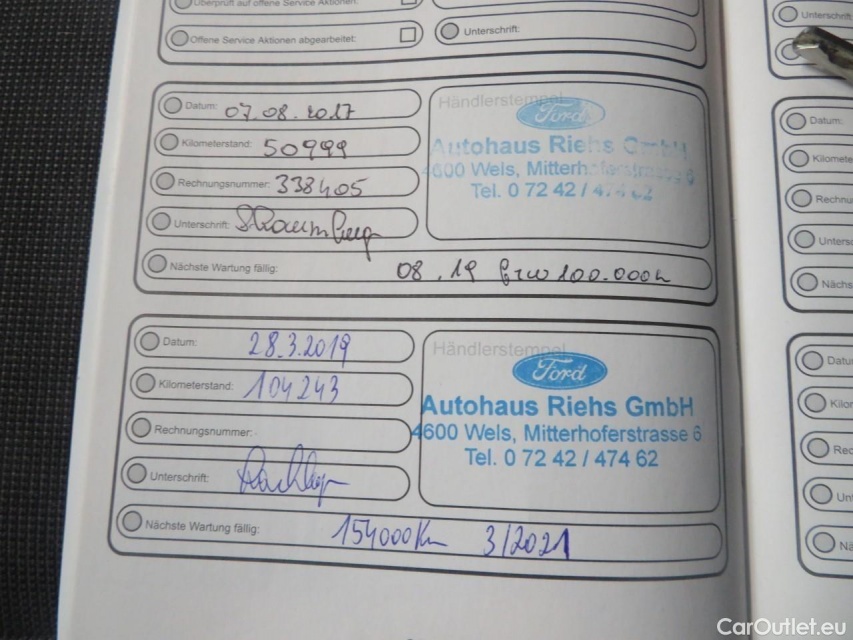 Überprüft auf offene Service Aktionen:
Offene Service Aktionen abgearbeitet:
Unterschrift:
Datum: 07.08.2017
Kilometerstand: 50999
Rechnungsnummer: 338405
Unterschrift:
Nächste Wartung fällig: 08.19 bzw 100.000k
Händlerstempel
Ford
Autohaus Riehs GmbH
4600 Wels, Mitterhoferstrasse 6
Tel. 0 72 42 / 474 62
Datum: 28.3.2019
Kilometerstand: 104243
Rechnungsnummer:
Unterschrift:
Nächste Wartung fällig: 154000Km 3/2021
Händlerstempel
Ford
Autohaus Riehs GmbH
4600 Wels, Mitterhoferstrasse 6
Tel. 0 72 42 / 474 62
Unterschrift
Datum:
Kilomete
Rechnu
Unters
Nächs
Datu
Kilor
Rec
Unt
Nä
CarOutlet.eu